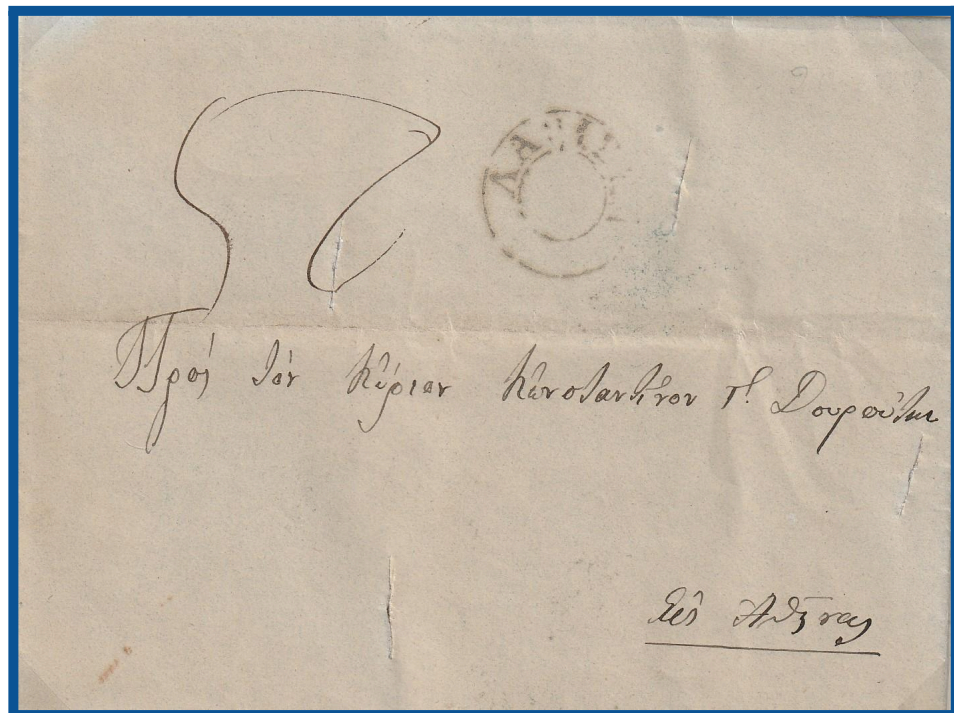 Πρὸς τὸν Κύριον Κωνσταντῖνον Γ. Δουρούτην
Εἰς Ἀθήνας